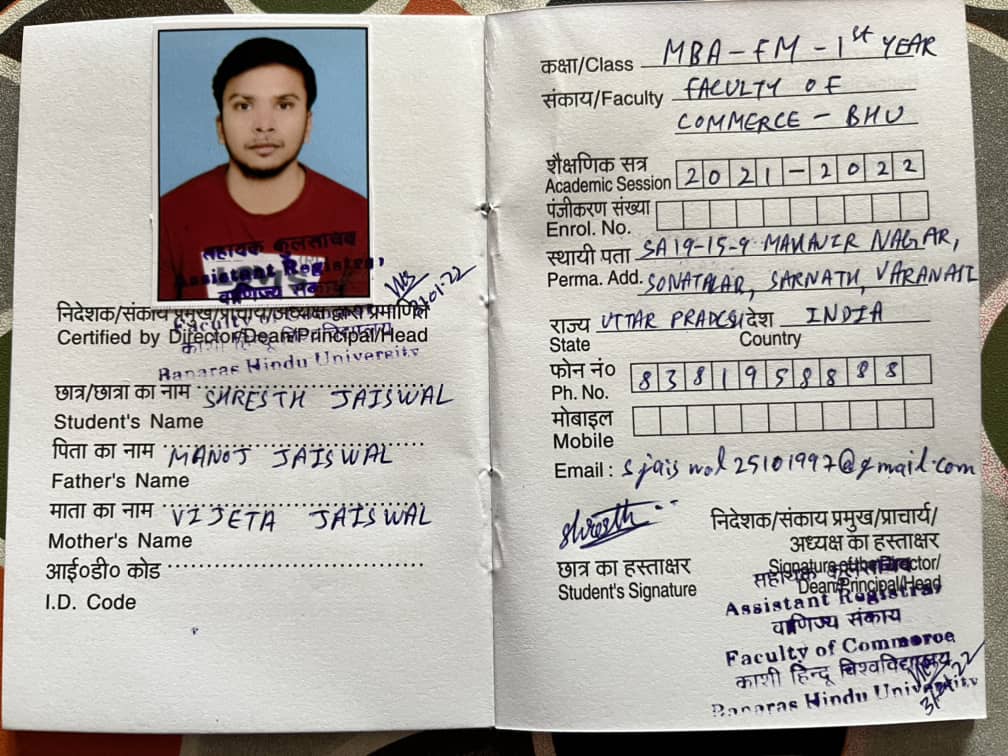 सहायक कुलसचिव
Assistant Registrar
वाणिज्य संकाय
निदेशक/संकाय प्रमुख/प्राचार्य/अध्यक्ष द्वारा प्रमाणित
Faculty of
Certified by Director/Dean/Principal/Head
Banaras Hindu University
छात्र/छात्रा का नाम SHRESTH JAISWAL
Student's Name
पिता का नाम MANOJ JAISWAL
Father's Name
माता का नाम VIJETA JAISWAL
Mother's Name
आई०डी० कोड
I.D. Code
कक्षा/Class MBA-FM-1st YEAR
संकाय/Faculty FACULTY OF
COMMERCE - BHU
शैक्षणिक सत्र
Academic Session 2021-2022
पंजीकरण संख्या
Enrol. No.
स्थायी पता SA19-15-9 MAHAVIR NAGAR,
Perma. Add. SONATALAB, SARNATH, VARANASI
राज्य UTTAR PRADESH देश INDIA
State Country
फोन नं०
Ph. No. 8381958888
मोबाइल
Mobile
Email : sjaiswal25101997@gmail.com
Shresth
निदेशक/संकाय प्रमुख/प्राचार्य/
अध्यक्ष का हस्ताक्षर
छात्र का हस्ताक्षर
Signature of the Director/
Student's Signature
Dean/Principal/Head
सहायक कुलसचिव
Assistant Registrar
वाणिज्य संकाय
Faculty of Commerce
काशी हिन्दू विश्वविद्यालय
Banaras Hindu University